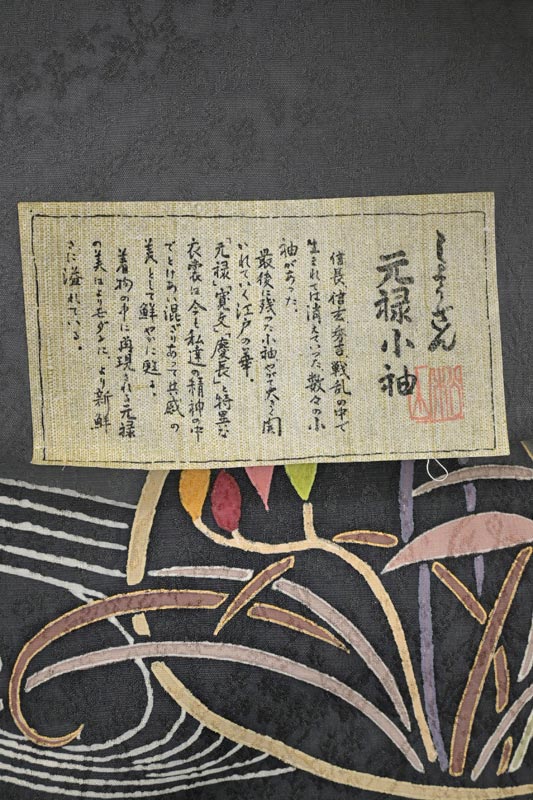 しょうざん
元禄小袖
信長、信玄、秀吉、戦乱の中で
生まれては消えていった数々の小
袖があった。
最後に残った小袖やがて大きく開
いれていく江戸の華。
「元禄」「寛文」「慶長」と特異な
衣裳は今も私達の精神の中
でとけあい混ざりあって共感の
美として鮮やかに甦る。
着物の中に再現される元禄
の美はよりモダンに、より新鮮
さに溢れている。